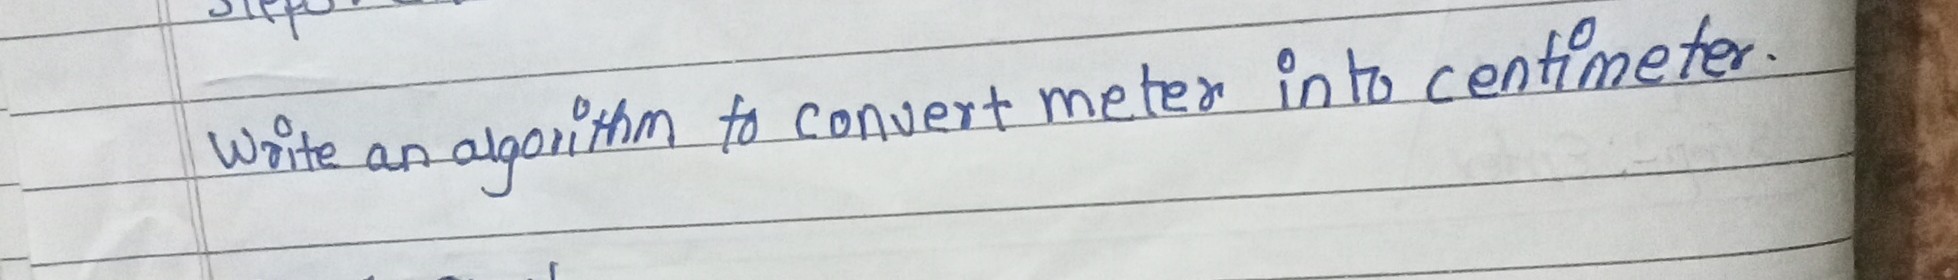 Write an algorithm to convert meter into centimeter.